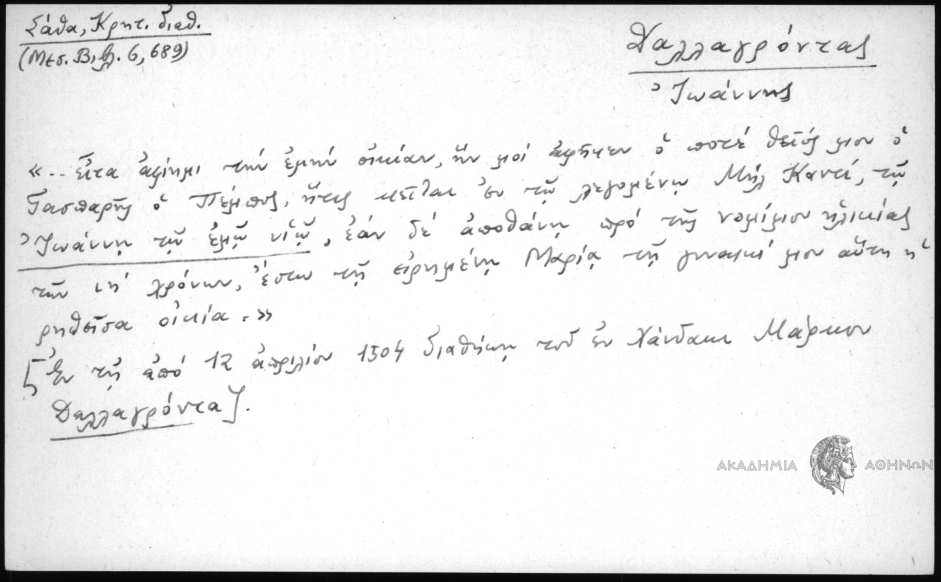 Σάθα, Κρητ. διαθ.
(Μεσ. Βιβλ. 6, 689)
Δαλλαγρόντας
Ἰωάννης
«... εἶτα ἀφίημι τήν ἐμήν οἰκίαν, ἥν μοί ἀφῆκεν ὁ ποτέ θεῖός μου ὁ
Γασπαρῆς ὁ Πέμπος, ἥτις κεῖται ἐν τῷ λεγομένῳ Μὴλ Καντέ, τῷ
Ἰωάννῃ τῷ ἐμῷ υἱῷ, ἐάν δέ ἀποθάνῃ πρό τῆς νομίμου ἡλικίας
τῶν ιη' χρόνων, ἔστω τῇ εἰρημένῃ Μαρίᾳ τῇ γυναικί μου αὕτη ἡ
ρηθεῖσα οἰκία.»
[Ἐν τῇ ἀπό 12 ἀπριλίου 1304 διαθήκῃ τοῦ ἐν Χάνδακι Μάρκου
Δαλλαγρόντα].
ΑΚΑΔΗΜΙΑ ΑΘΗΝΩΝ